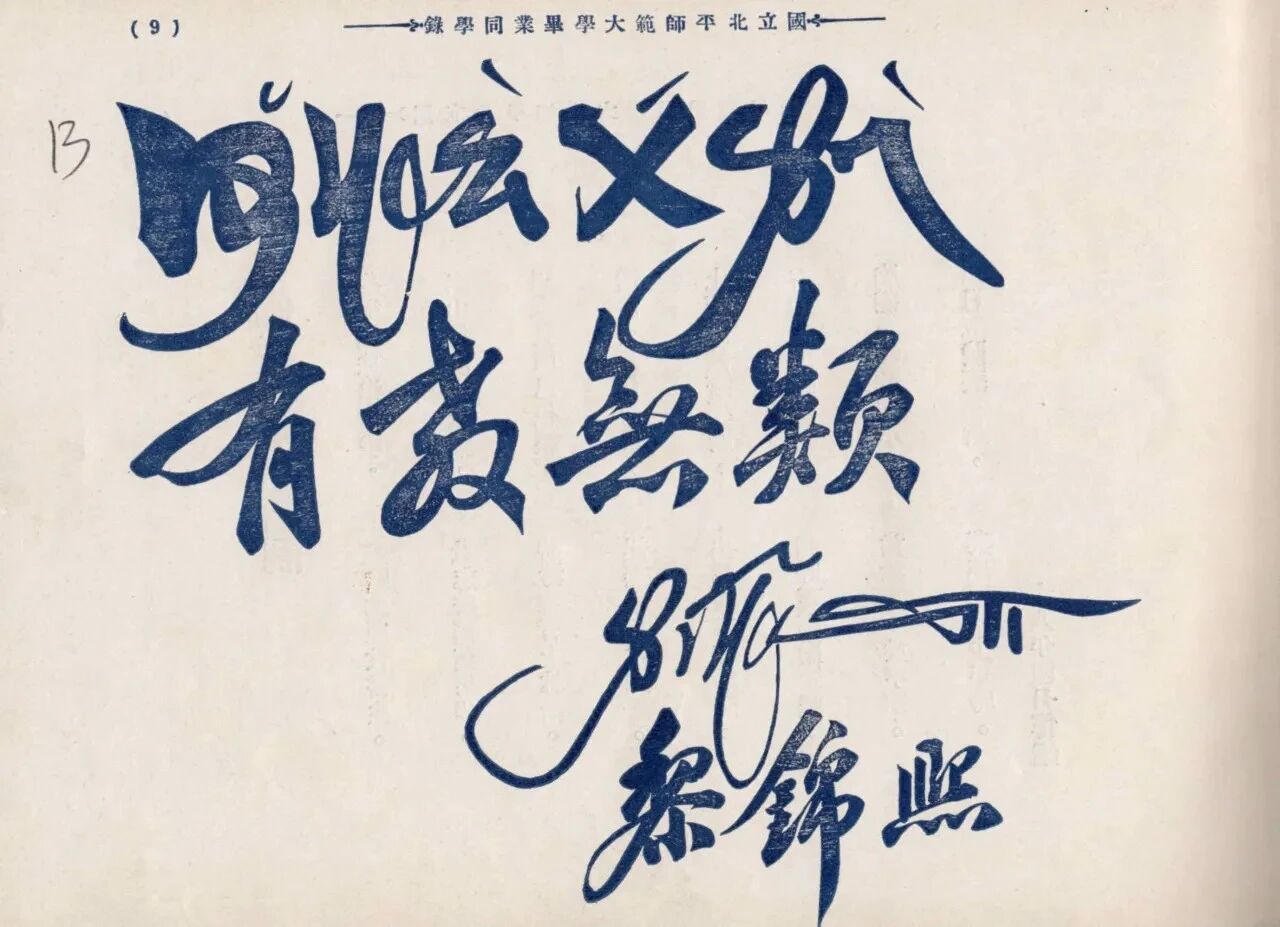 (9)
國立北平師範大學畢業同學錄
13
ㄧㄡˇ ㄐㄧㄠˋ ㄨˊ ㄌㄟˋ
有教無類
黎錦熙